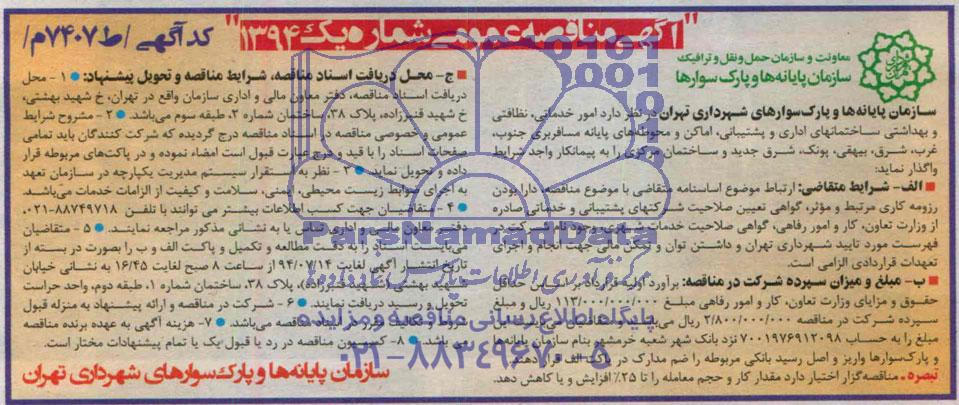 "آگهی مناقصه عمومی شماره یک ۱۳۹۴"
کد آگهی /ط۷۴۰۷م/
معاونت و سازمان حمل و نقل و ترافیک
سازمان پایانه‌ها و پارک‌سوارها
سازمان پایانه‌ها و پارک‌سوارهای شهرداری تهران در نظر دارد امور خدماتی، نظافتی
و بهداشتی ساختمانهای اداری و پشتیبانی، اماکن و محوطه‌های پایانه مسافربری جنوب،
غرب، شرق، بیهقی، پونک، شرق جدید و ساختمان مرکزی را به پیمانکار واجد شرایط
واگذار نماید:
■ الف- شرایط متقاضی: ارتباط موضوع اساسنامه متقاضی با موضوع مناقصه، دارا بودن
رزومه کاری مرتبط و مؤثر، گواهی تعیین صلاحیت شرکتهای پشتیبانی و خدماتی صادره
از وزارت تعاون، کار و امور رفاهی، گواهی صلاحیت خدمات شهری، وجود نام شرکت در
فهرست مورد تایید شهرداری تهران و داشتن توان و تمکن مالی جهت انجام و اجرای
تعهدات قراردادی الزامی است.
■ ب- مبلغ و میزان سپرده شرکت در مناقصه: برآورد اولیه قرارداد بر اساس حداقل
حقوق و مزایای وزارت تعاون، کار و امور رفاهی مبلغ ۱۱۳/۰۰۰/۰۰۰/۰۰۰ ریال و مبلغ
سپرده شرکت در مناقصه ۲/۸۰۰/۰۰۰/۰۰۰ ریال می‌باشد و متقاضیان می‌بایست این
مبلغ را به حساب ۷۰۰۱۹۷۶۹۱۲۰۹۸ نزد بانک شهر شعبه خرمشهر بنام سازمان پایانه‌ها
و پارک‌سوارها واریز و اصل رسید بانکی مربوطه را ضم مدارک در پاکت الف قرار دهند.
تبصره- مناقصه‌گزار اختیار دارد مقدار کار و حجم معامله را تا ۲۵٪ افزایش و یا کاهش دهد.
■ ج- محل دریافت اسناد مناقصه، شرایط مناقصه و تحویل پیشنهاد: ● ۱- محل
دریافت اسناد مناقصه، دفتر معاون مالی و اداری سازمان واقع در تهران، خ شهید بهشتی،
خ شهید قنبرزاده، پلاک ۳۸، ساختمان شماره ۲، طبقه سوم می‌باشد. ● ۲- مشروح شرایط
عمومی و خصوصی مناقصه در اسناد مناقصه درج گردیده که شرکت کنندگان باید تمامی
صفحات اسناد را با قید و مرج عبارت قبول است امضاء نموده و در پاکت‌های مربوطه قرار
داده و تحویل نماید. ● ۳- نظر به استقرار سیستم مدیریت یکپارچه در سازمان تعهد
به اجرای ضوابط زیست محیطی، ایمنی، سلامت و کیفیت از الزامات خدمات می‌باشد.
● ۴- متقاضیان جهت کسب اطلاعات بیشتر می توانند با تلفن ۸۸۷۴۹۷۱۸-۰۲۱
دفتر معاون مالی و اداری تماس یا به نشانی مذکور مراجعه نمایند. ● ۵- متقاضیان
می‌بایست اسناد را به دقت مطالعه و تکمیل و پاکت الف و ب را بصورت در بسته از
تاریخ انتشار آگهی لغایت ۹۴/۰۷/۱۴ از ساعت ۸ صبح لغایت ۱۶/۴۵ به نشانی خیابان
شهید بهشتی، شهید قنبرزاده، پلاک ۳۸، ساختمان شماره ۱، طبقه دوم، واحد حراست
تحویل و رسید دریافت نمایند. ● ۶- شرکت در مناقصه و ارائه پیشنهاد به منزله قبول
شروط و تکالیف مقرر در اسناد مناقصه می‌باشد. ● ۷- هزینه آگهی به عهده برنده مناقصه
می باشد. ● ۸- کمیسیون مناقصه در رد یا قبول یک یا تمام پیشنهادات مختار است.
سازمان پایانه‌ها و پارک‌سوارهای شهرداری تهران
ParsNamadData
مرکز فرآوری اطلاعات پارس نماد داده‌ها
پایگاه اطلاع رسانی مناقصه و مزایده
۰۲۱-۸۸۳۴۹۶۷۰-۵